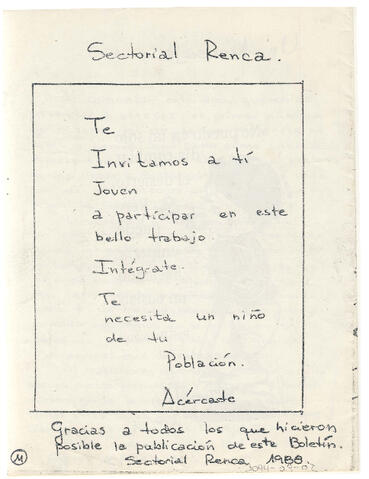 Sectorial Renca.
Te
Invitamos a tí
Joven
a participar en este
bello trabajo.
Intégrate.
Te
necesita un niño
de tu
Población.
Acércade
Gracias a todos los que hicieron
posible la publicación de este Boletín.
Sectorial Renca 1988.
11